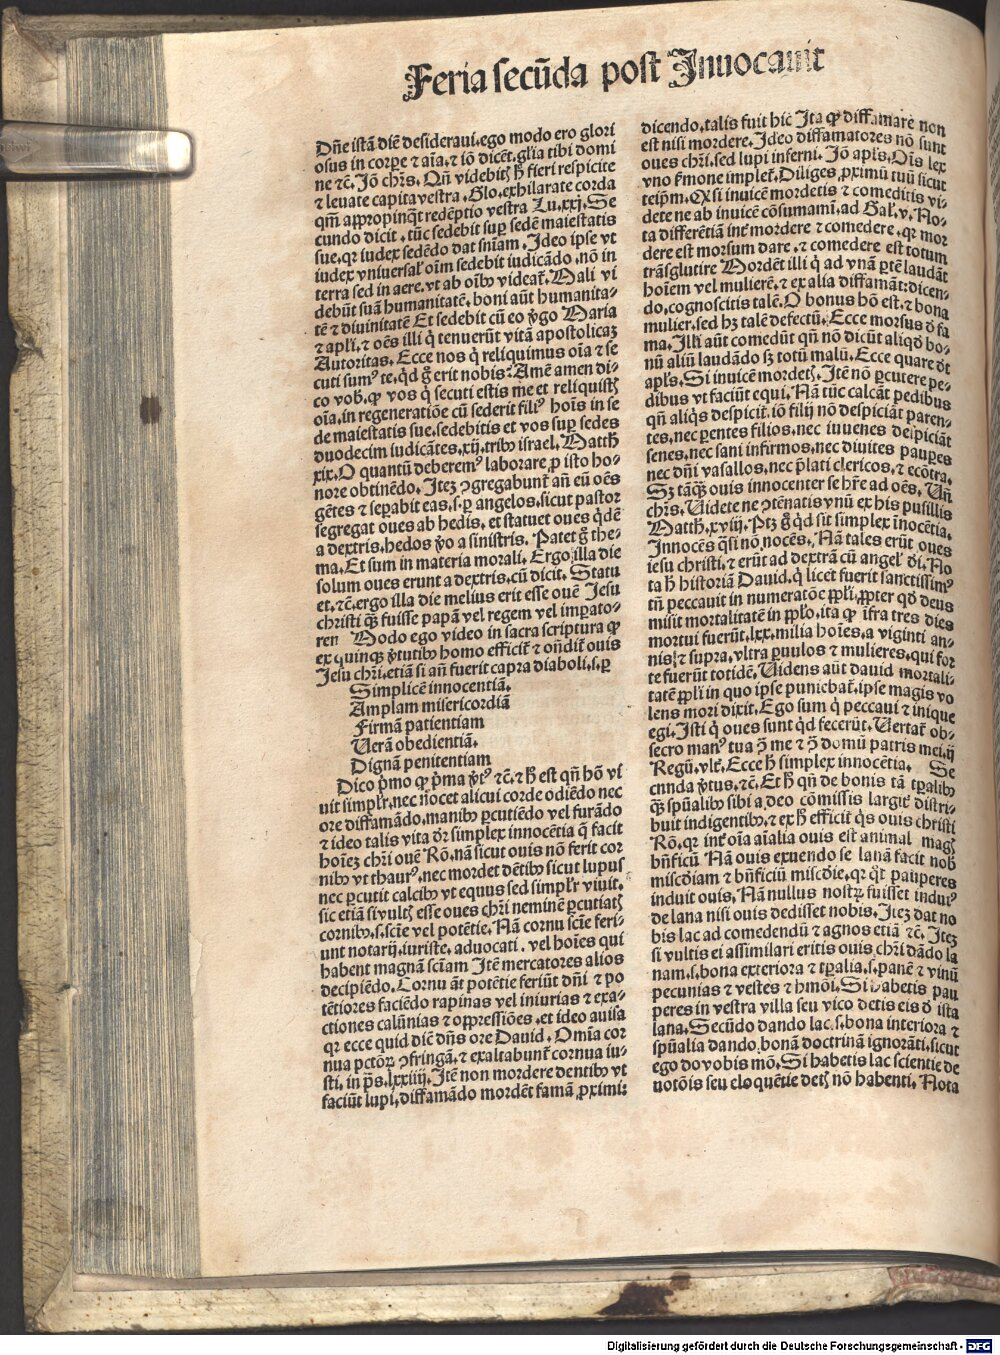 Feria secūda post Inuocauit
Dn̄e istā diē desideraui.ego modo ero glori
osus in corpe ⁊ aīa.⁊ iō dicēt.gl̄ia tibi domi
ne ⁊c̄. Iō chr̄s. Qn̄ videbitꝭ h̄ fieri respicite
⁊ leuate capita vestra. Glo. exhilarate corda
qm̄ appropinq̄t redēptio vestra Lu.xxj. Se
cundo dicit. tūc sedebit sup̱ sedē maiestatis
sue.qr iudex sedēdo dat sn̄iam. Ideo ipse vt
iudex vniuersal' oīm sedebit iudicādo.nō in
terra sed in aere.vt ab oībꝰ videat̄. Mali vi
debūt suā humanitatē.boni aūt humanita-
tē ⁊ diuinitatē Et sedebit cū eo v̄go Maria
⁊ apl'i.⁊ oēs illi q̄ tenuerūt vitā apostolicaꝫ
Autoritas. Ecce nos q̄ reliquimus oīa ⁊ se
cuti sumꝰ te.q̄d g̊ erit nobis: Amē amen di-
co vob̄.ꝙ vos q̄ secuti estis me et reliquistꝭ
oīa.in regeneratiōe cū sederit filiꝰ hoīs in se
de maiestatis sue.sedebitis et vos sup̱ sedes
duodecim iudicātes.xij.tribꝰ israel. Matth̄
xix. O quantū deberemꝰ laborare ꝓ isto ho-
nore obtinēdo. Iteꝫ ꝯgregabunt̄ an̄ eū oēs
gētes ⁊ sep̱abit eas.s.p̱ angelos.sicut pastor
segregat oues ab hedis.et statuet oues q̄dē
a dextris.hedos v̄o a sinistris. Patet g̊ the-
ma. Et sum in materia morali. Ergo illa die
solum oues erunt a dextris.cū dicit. Statu
et.⁊c̄.ergo illa die melius erit esse ouē Iesu
christi q̄ꝫ fuisse papā vel regem vel imp̱ato-
ren Modo ego video in sacra scriptura ꝙ
ex quinqꝫ v̄tutibꝰ homo efficit̄ ⁊ on̄dit̄ ouis
Iesu chr̄i.etiā si an̄ fuerit capra diaboli.s.p̱
Simplicē innocentiā.
Amplam misericordiā
Firmā patientiam
Verā obedientiā.
Dignā penitentiam
Dico p̄mo ꝙ p̄ma v̄tꝰ ⁊c̄. ⁊ h̄ est qn̄ hō vi
uit simpl'r.nec nocet alicui corde odiēdo nec
ore diffamādo.manibꝰ p̱cutiēdo vel furādo
⁊ ideo talis vita dr̄ simplex innocētia q̄ facit
hoīeꝫ chr̄i ouē Rō.nā sicut ouis nō ferit cor
nibꝰ vt thaurꝰ.nec mordet dētibꝰ sicut lupus
nec p̱cutit calcibꝰ vt equus sed simpl'r viuit.
sic etiā si vultꝭ esse oues chr̄i neminē p̱cutiatꝭ
cornibꝰ.s.scīe vel potētie. Nā cornu scīe feri-
unt notarij.iuriste.aduocati.vel hoīes qui
habent magnā scīam Itē mercatores alios
decipiēdo. Cornu āt potētie feriūt dn̄i ⁊ po
tētiores faciēdo rapinas vel iniurias ⁊ exa-
ctiones calūnias ⁊ oppressiōes.et ideo auisa
qr ecce quid dicē dn̄s ore Dauid. Omīa cor
nua pctōꝝ ꝯfringā.⁊ exaltabunt̄ cornua iu-
sti.in ps̄.lxxiiij. Itē non mordere dentibꝰ vt
faciūt lupi.diffamādo mordēt famā ꝓximi:
dicendo.talis fuit hic Ita ꝙ diffamare non
est nisi mordere. Ideo diffamatores nō sunt
oues chr̄i.sed lupi inferni. Iō apl's. Oīs lex
vno s̄mone implet̄. Diliges ꝓximū tuū sicut
teip̄m. Qꝫ si inuicē mordetis ⁊ comeditis vi-
dete ne ab inuicē cōsumamī.ad Gal'.v. No-
ta differētiā int̄ mordere ⁊ comedere.qr mor
dere est morsum dare.⁊ comedere est totum
trāsglutire Mordēt illi q̄ ad vnā p̱tē laudāt
hoīem vel mulierē.⁊ ex alia diffamāt:dicen-
do.cognoscitis talē. O bonus hō est.⁊ bona
mulier.sed hꝫ talē defectū. Ecce morsus d̄ fa
ma. Illi aūt comedūt qn̄ nō dicūt aliqd̄ bo-
nū aliū laudādo sꝫ totū malū. Ecce quare dt̄
apl's. Si inuicē mordetꝭ. Itē nō p̱cutere pe-
dibus vt faciūt equi. Nā tūc calcāt pedibus
qn̄ aliq̄s despicit.iō filij nō despiciāt paren-
tes.nec p̱entes filios.nec iuuenes despiciāt
senes.nec sani infirmos.nec diuites paup̱es
nec dn̄i vasallos.nec p̄lati clericos.⁊ ecōtra.
Sꝫ tāq̄ꝫ ouis innocenter se hr̄e ad oēs. Vn̄
chr̄s. Uidete ne ꝯtēnatis vnū ex his pusillis
Matth̄.xviij. Ptꝫ g̊ q̄d sit simplex īnocētia.
Innocēs q̄si nō nocēs. Nā tales erūt oues
iesu christi.⁊ erūt ad dextrā cū angel' di. No
ta h̄ historiā Dauid.q̄ licet fuerit sanctissimꝰ
tn̄ peccauit in numeratōe ppl'i.ꝓpter qd̄ deus
misit mortalitatē in ppl'o.ita ꝙ īfra tres dies
mortui fuerūt.lxx.milia hoīes.a viginti an-
nis:⁊ supra.vltra p̱uulos ⁊ mulieres.qui for
te fuerūt totidē. Videns aūt dauid mortali-
tatē ppl'i in quo ipse puniebat̄.ipse magis vo
lens mori dixit. Ego sum q̄ peccaui ⁊ inique
egi. Isti q̄ oues sunt qd̄ fecerūt. Vertat̄ ob-
secro manꝰ tua ꝯ̄ me ⁊ ꝯ̄ domū patris mei.ij
Regū.vlt̄. Ecce h̄ simplex innocētia. Se
cunda v̄tus.⁊c̄. Et h̄ qn̄ de bonis tā tp̱alibꝰ
q̄ꝫ spūalibꝰ sibi a deo cōmissis largit̄ distri-
buit indigentibꝰ.⁊ ex h̄ efficit̄ q̄s ouis christi
Rō.qr int̄ oīa aīalia ouis est animal mag̊
bn̄ficū Nā ouis exuendo se lanā facit nob̄
miscd̄iam ⁊ bn̄ficiū miscd̄ie.qr q̊t pauperes
induit ouis. Nā nullus nostrꝝ fuisset induiꝰ
de lana nisi ouis dedisset nobis. Iteꝫ dat no
bis lac ad comedendū ⁊ agnos etiā ⁊c̄. Iteꝫ
si vultis ei assimilari eritis ouis chr̄i dādo la
nam.s.bona exteriora ⁊ tp̱alia.s.panē ⁊ vinū
pecunias ⁊ vestes ⁊ hmōi. Si habetis pau
peres in vestra villa seu vico detis eis d̄ ista
lana. Secūdo dando lac.s.bona interiora ⁊
spūalia dando.bonā doctrinā ignorāti.sicut
ego do vobis mō. Si habetis lac scientie de
uotōis seu eloquētie detꝭ nō habenti. Nota
Digitalisierung gefördert durch die Deutsche Forschungsgemeinschaft - DFG